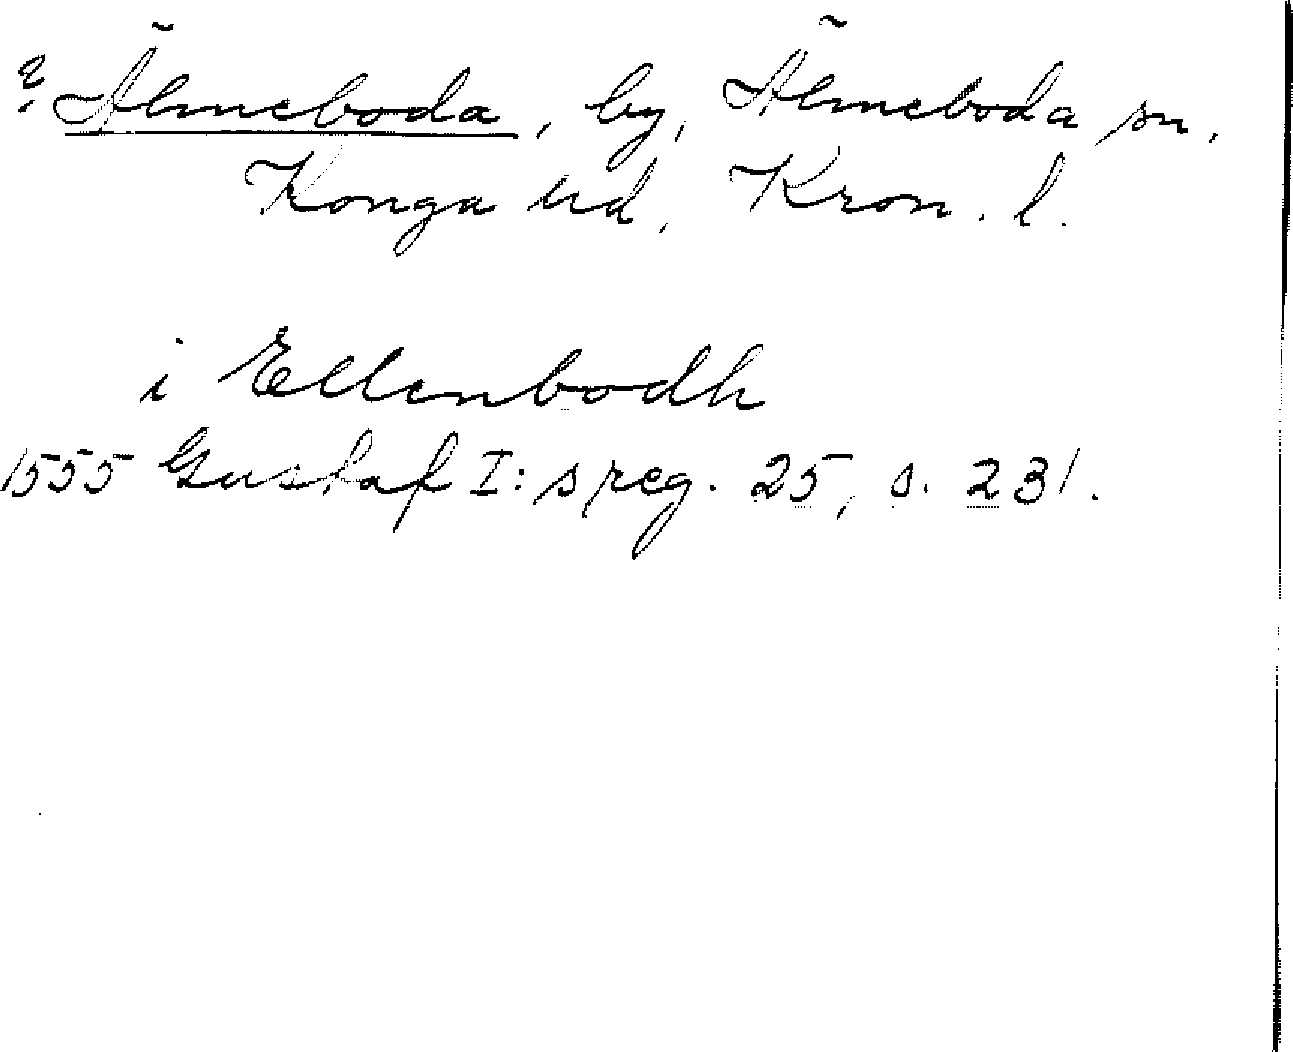 ? Älmeboda, by, Älmeboda sn,
Konga hd, Kron. l.
i Ellenbodh
1555 Gustaf I:s reg. 25, s. 231.